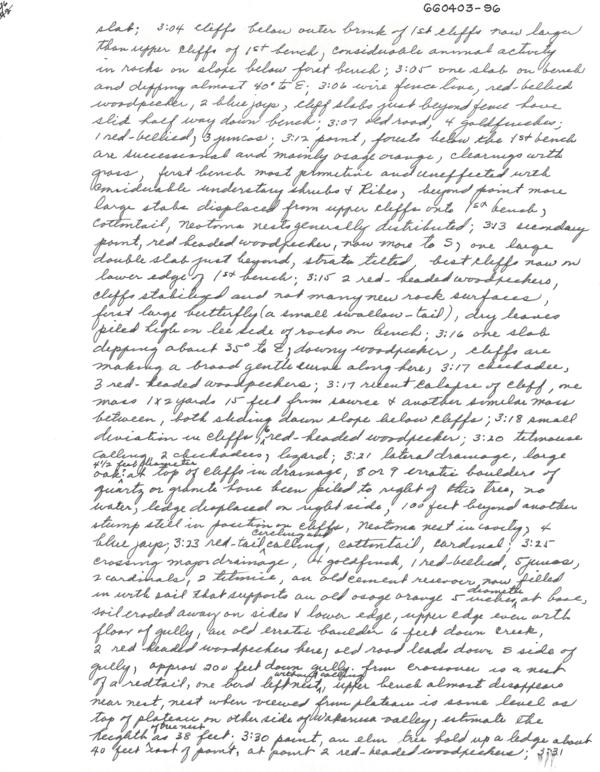 GG0403-96
slab; 3:04 cliffs below outer brink of 1st cliffs now larger
than upper cliffs of 1st bench, considerable animal activity
in rocks on slope below first bench; 3:05 one slab on bench
and dipping almost 40° to E; 3:06 wire fence line, red-bellied
woodpecker, 2 blue jays, cliff slabs just beyond fence have
slid half way down bench; 3:07 old road, 4 goldfinches;
1 red-bellied, 3 juncos; 3:12 point, forests below the 1st bench
are successional and mainly osage orange, clearings with
grass, first bench most primitive and uneffected with
considerable understory shrubs & Ribes, beyond point more
large slabs displaced from upper cliffs onto 1st bench,
cottontail, Neotoma nests generally distributed; 313 secondary
point, red headed woodpecker, now more to S, one large
double slab just beyond, strata tilted, best cliffs now on
lower edge of 1st bench; 3:15 2 red-headed woodpeckers,
cliffs stabilized and not many new rock surfaces,
first large butterfly (a small swallow-tail), dry leaves
piled high on lee side of rocks on bench; 3:16 one slab
dipping about 35° to E, downy woodpecker, cliffs are
making a broad gentle curve along here, 3:17 chickadee,
3 red-headed woodpeckers; 3:17 recent calapse of cliff, one
mass 1x2 yards 15 feet from source & another similar mass
between, both sliding down slope below cliffs; 3:18 small
deviation in cliffs, red-headed woodpecker; 3:20 titmouse
calling, 2 chickadees, lizard; 3:21 lateral drainage, large
4 1/2 feet diameter
oak at top of cliffs in drainage, 8 or 9 erratic boulders of
quartz or granite have been piled to right of this tree, no
water, ledge displaced on right side, 100 feet beyond another
stump still in position on cliffs, Neotoma nest in cavity, 4
circling and
blue jays, 3:23 red-tail calling, cottontail, cardinal; 3:25
crossing major drainage, 4 goldfinch, 1 red-bellied, 5 juncos,
2 cardinals, 2 titmice, an old cement resevoir, now filled
diameter
in with soil that supports an old osage orange 5 inches at base,
soil eroded away on sides & lower edge, upper edge even with
floor of gully, an old erratic boulder 6 feet down creek,
2 red headed woodpeckers here; old road leads down S side of
gully, approx 200 feet down gully from crossover is a nest
without calling
of a redtail, one bird left nest, upper bench almost disappears
near nest, nest when viewed from plateau is same level as
top of plateau on other side of Wakarusa valley, estimate the
of tree nest
heighth as 38 feet. 3:30 point, an elm tree hold up a ledge about
40 feet east of point, at point 2 red-headed woodpeckers; 3:31